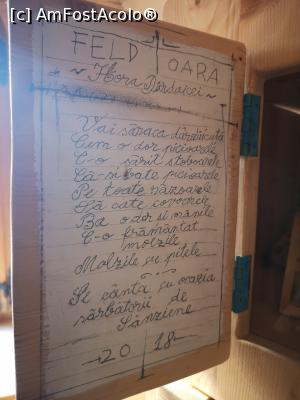 [c] AmFostAcolo®
FELD OARA
~ Hora Dârdaicei ~
Vai săraca dârdăicuță
Cum o dor picioarele
C-o sărit stoboarele
Că-și bate picioarele
Pe toate răzoarele
Să cate covoarele
Ba o dor și mânile
C-o frământat
molzile
Molzile cu pitele
Se cânta cu ocazia
sărbătorii de
Sânziene
2018